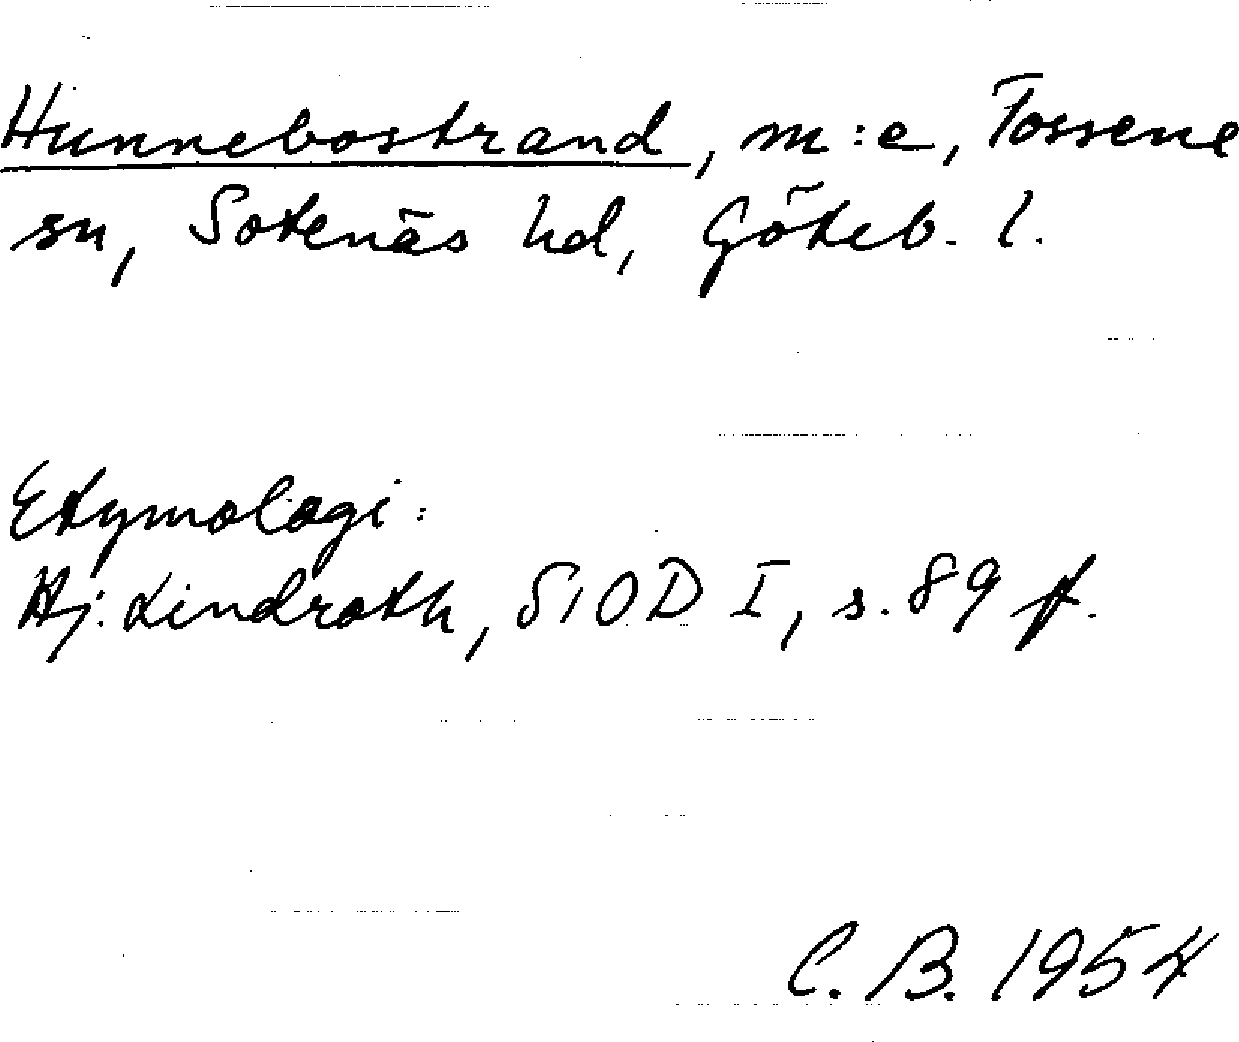 Hunnebostrand, m:e, Tossene
sn, Sotenäs hd, Göteb. l.
Etymologi:
Hj. Lindroth, SIOD I, s. 89 f.
C. B. 1954